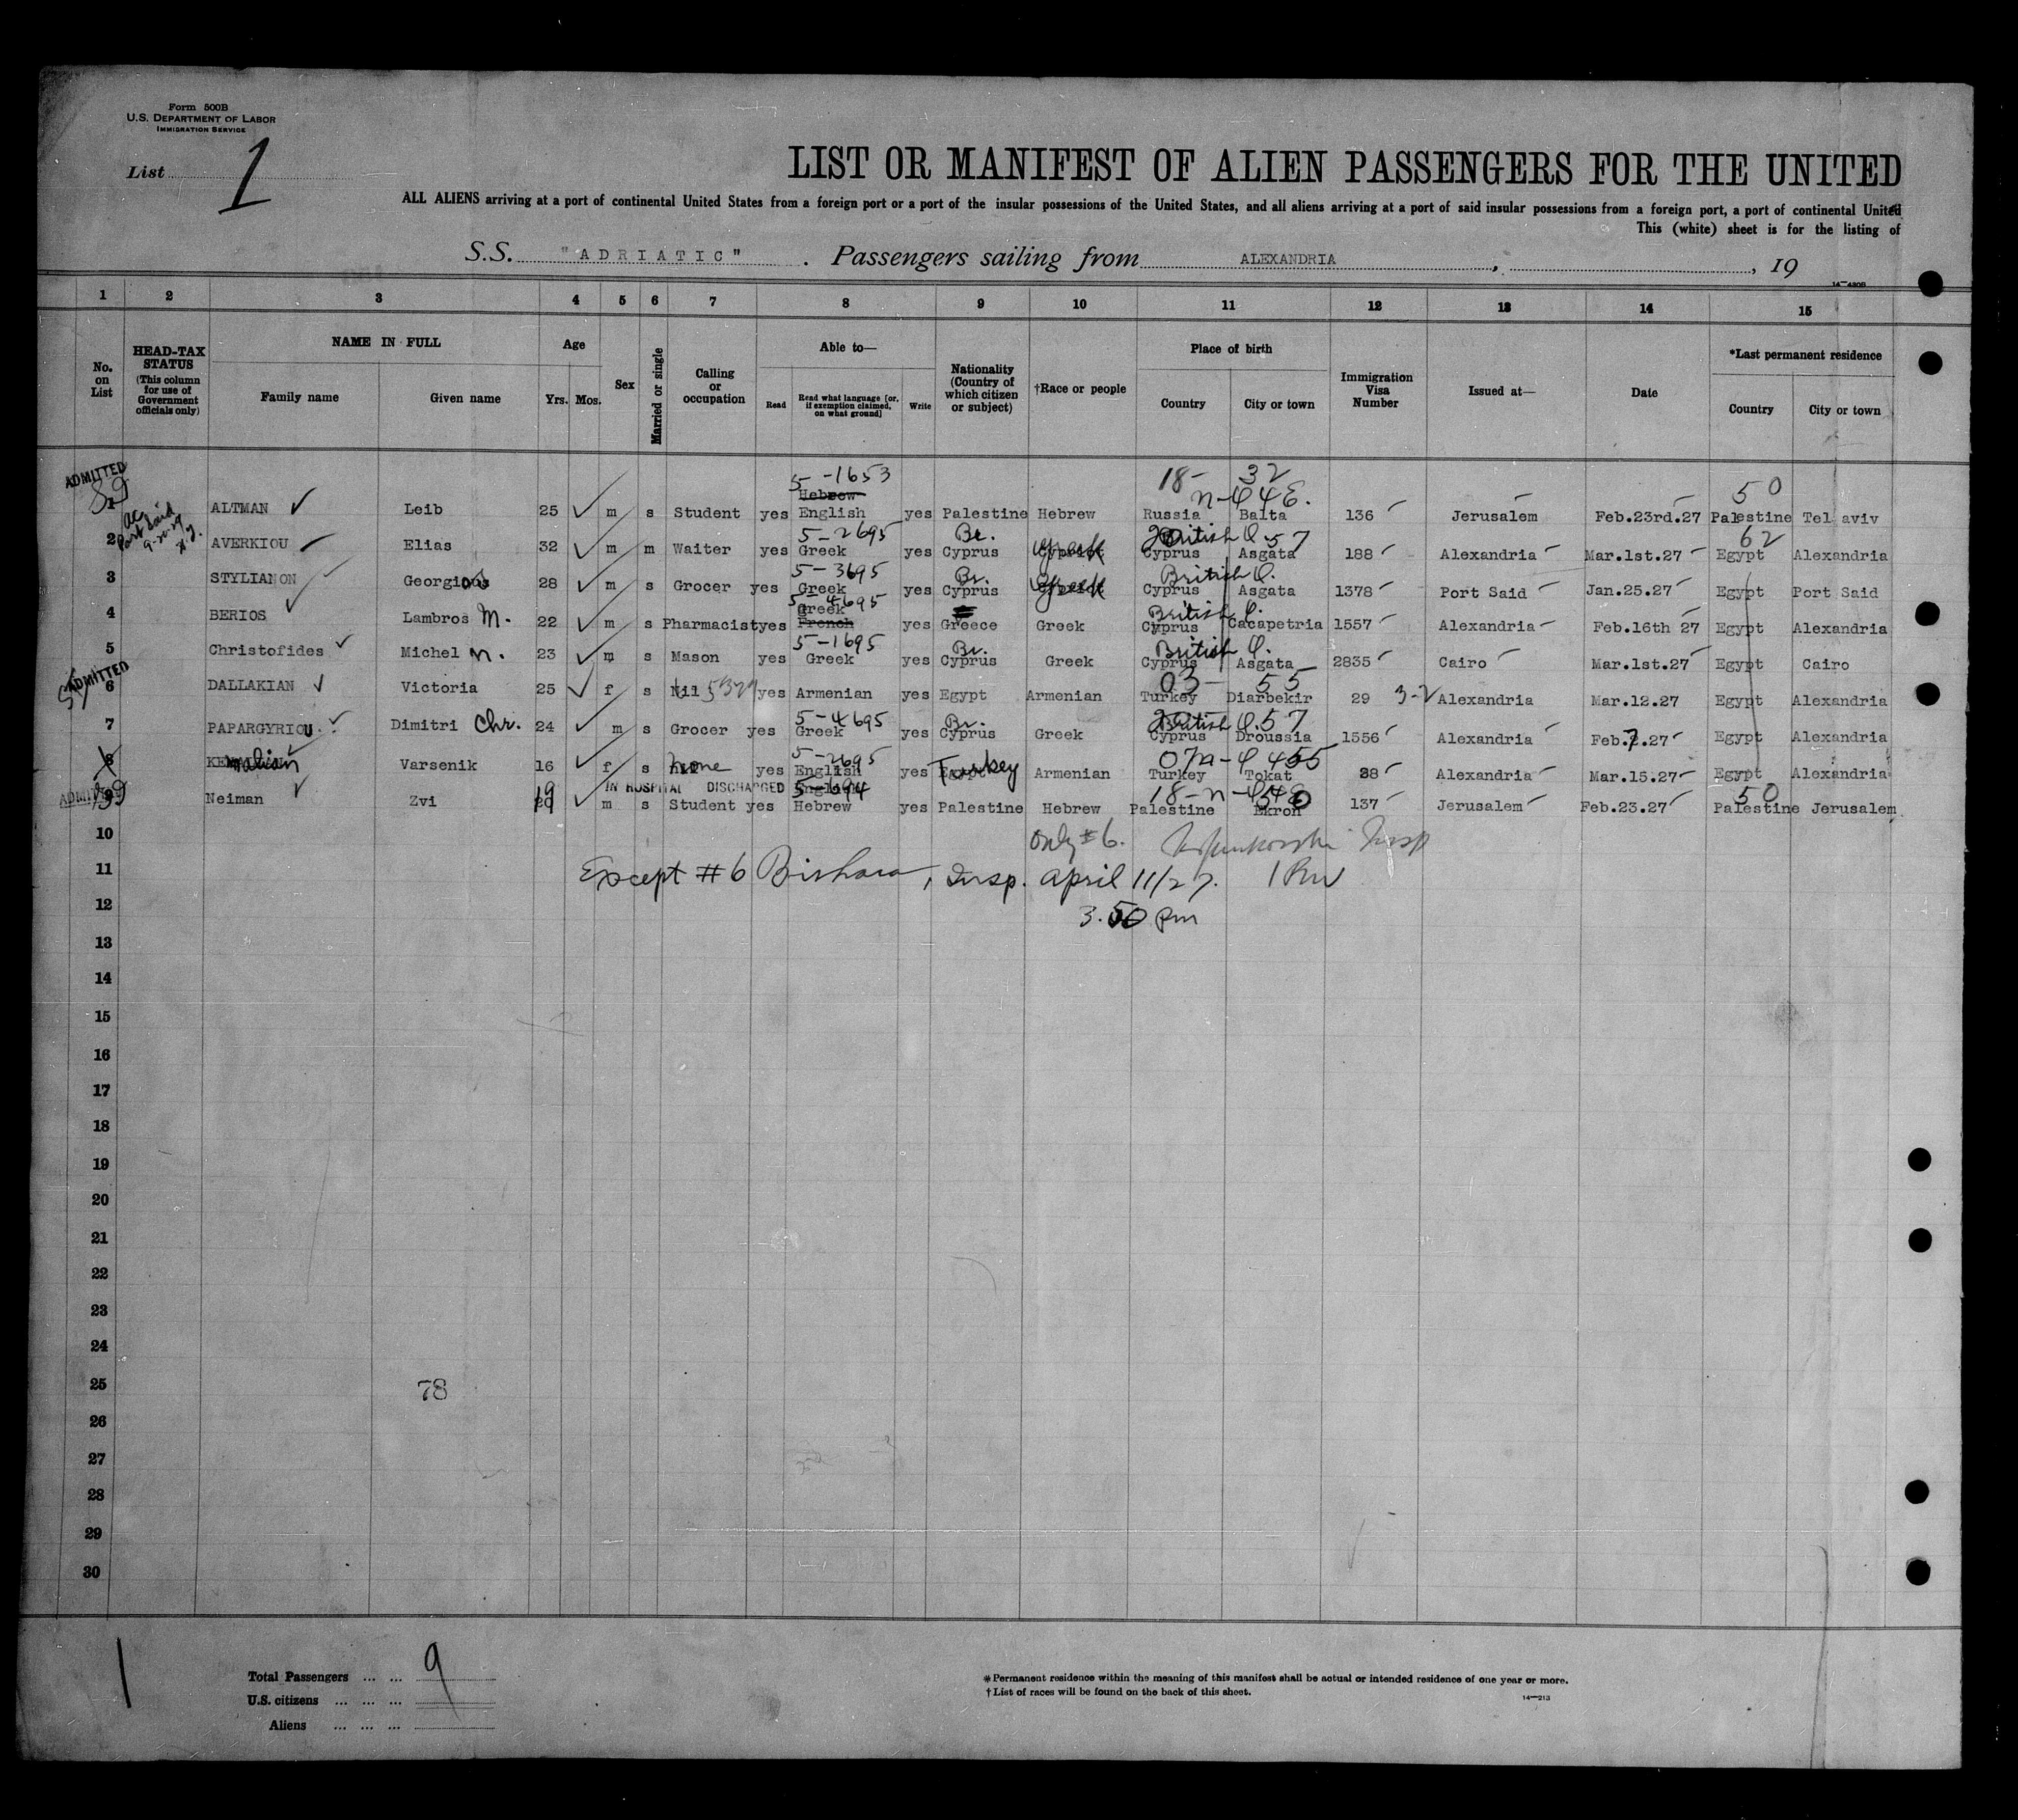 Form 500B
U.S. DEPARTMENT OF LABOR
IMMIGRATION SERVICE
List 1
LIST OR MANIFEST OF ALIEN PASSENGERS FOR THE UNITED
ALL ALIENS arriving at a port of continental United States from a foreign port or a port of the insular possessions of the United States, and all aliens arriving at a port of said insular possessions from a foreign port, a port of continental United
This (white) sheet is for the listing of
S.S. "ADRIATIC" . Passengers sailing from ALEXANDRIA , , 19
14—4208
1 2 3 4 5 6 7 8 9 10 11 12 13 14 15
No. on List
HEAD-TAX STATUS (This column for use of Government officials only)
NAME IN FULL
Family name Given name
Age
Yrs. Mos.
Sex
Married or single
Calling or occupation
Able to—
Read Read what language [or, if exemption claimed, on what ground] Write
Nationality (Country of which citizen or subject)
†Race or people
Place of birth
Country City or town
Immigration Visa Number
Issued at—
Date
*Last permanent residence
Country City or town
ADMITTED
5 -1653 18- 32
Hebrew n-446. 50
1 ALTMAN Leib 25 m s Student yes English yes Palestine Hebrew Russia Balta 136 Jerusalem Feb.23rd.27 Palestine Tel aviv
Port Said
5-2695 Br. British 57 62
2 AVERKIOU Elias 32 m m Waiter yes Greek yes Cyprus Greek Cyprus Asgata 188 Alexandria Mar.1st.27 Egypt Alexandria
5-3695 Br. British
3 STYLIANON Georgious 28 m s Grocer yes Greek yes Cyprus Greek Cyprus Asgata 1378 Port Said Jan.25.27 Egypt Port Said
5-4695 British
Greek
4 BERIOS Lambros M. 22 m s Pharmacist yes French yes Greece Greek Cyprus Cacapetria 1557 Alexandria Feb.16th 27 Egypt Alexandria
5-1695 Br. British
5 Christofides Michel N. 23 m s Mason yes Greek yes Cyprus Greek Cyprus Asgata 2835 Cairo Mar.1st.27 Egypt Cairo
ADMITTED
03- 55
6 DALLAKIAN Victoria 25 f s Nil yes Armenian yes Egypt Armenian Turkey Diarbekir 29 3-2 Alexandria Mar.12.27 Egypt Alexandria
5-4695 Br. British 57
7 PAPARGYRIOU Dimitri Chr. 24 m s Grocer yes Greek yes Cyprus Greek Cyprus Droussia 1556 Alexandria Feb.7.27 Egypt Alexandria
5-2695 07n-4455
8 Varsenik 16 f s none yes English yes Turkey Armenian Turkey Tokat 28 Alexandria Mar.15.27 Egypt Alexandria
ADMITTED
IN HOSPITAL DISCHARGED English 5-694 18-n- 50
9 Neiman Zvi 19 m s Student yes Hebrew yes Palestine Hebrew Palestine Ekron 137 Jerusalem Feb.23.27 Palestine Jerusalem
10 Only #6. Insp
11 Except #6 Bishara, Insp. April 11/27. 1 Pm
12 3.50 Pm
13
14
15
16
17
18
19
20
21
22
23
24
25 78
26
27
28
29
30
1
Total Passengers ... ... 9
U.S. citizens ... ... ...
Aliens ... ... ...
*Permanent residence within the meaning of this manifest shall be actual or intended residence of one year or more.
†List of races will be found on the back of this sheet.
14—213